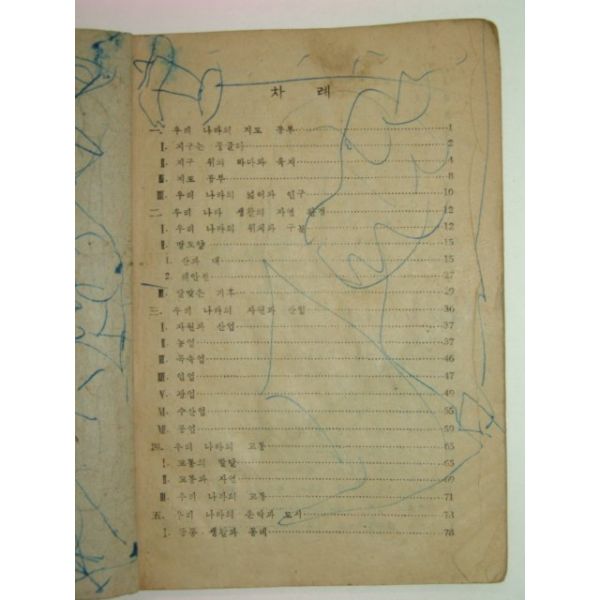 차 례
一. 우리 나라의 지도 공부 1
I. 지구는 둥글다 2
II. 지구 위의 바다와 육지 4
III. 지도 공부 8
III. 우리 나라의 넓히와 인구 10
二. 우리 나라 생활의 자연 환경 12
I. 우리 나라의 위치와 구분 12
II. 땅모양 15
1. 산과 내 15
2. 해안선 27
III. 알맞은 기후 29
三. 우리 나라의 자원과 산업 36
I. 자원과 산업 37
II. 농업 37
III. 목축업 46
IIII. 임업 47
V. 광업 49
VI. 수산업 55
VII. 공업 59
四. 우리 나라의 교통 65
I. 교통의 발달 65
II. 교통과 자연 69
III. 우리 나라의 교통 71
五. 우리 나라의 촌락과 도시 73
I. 공동 생활과 통비 78